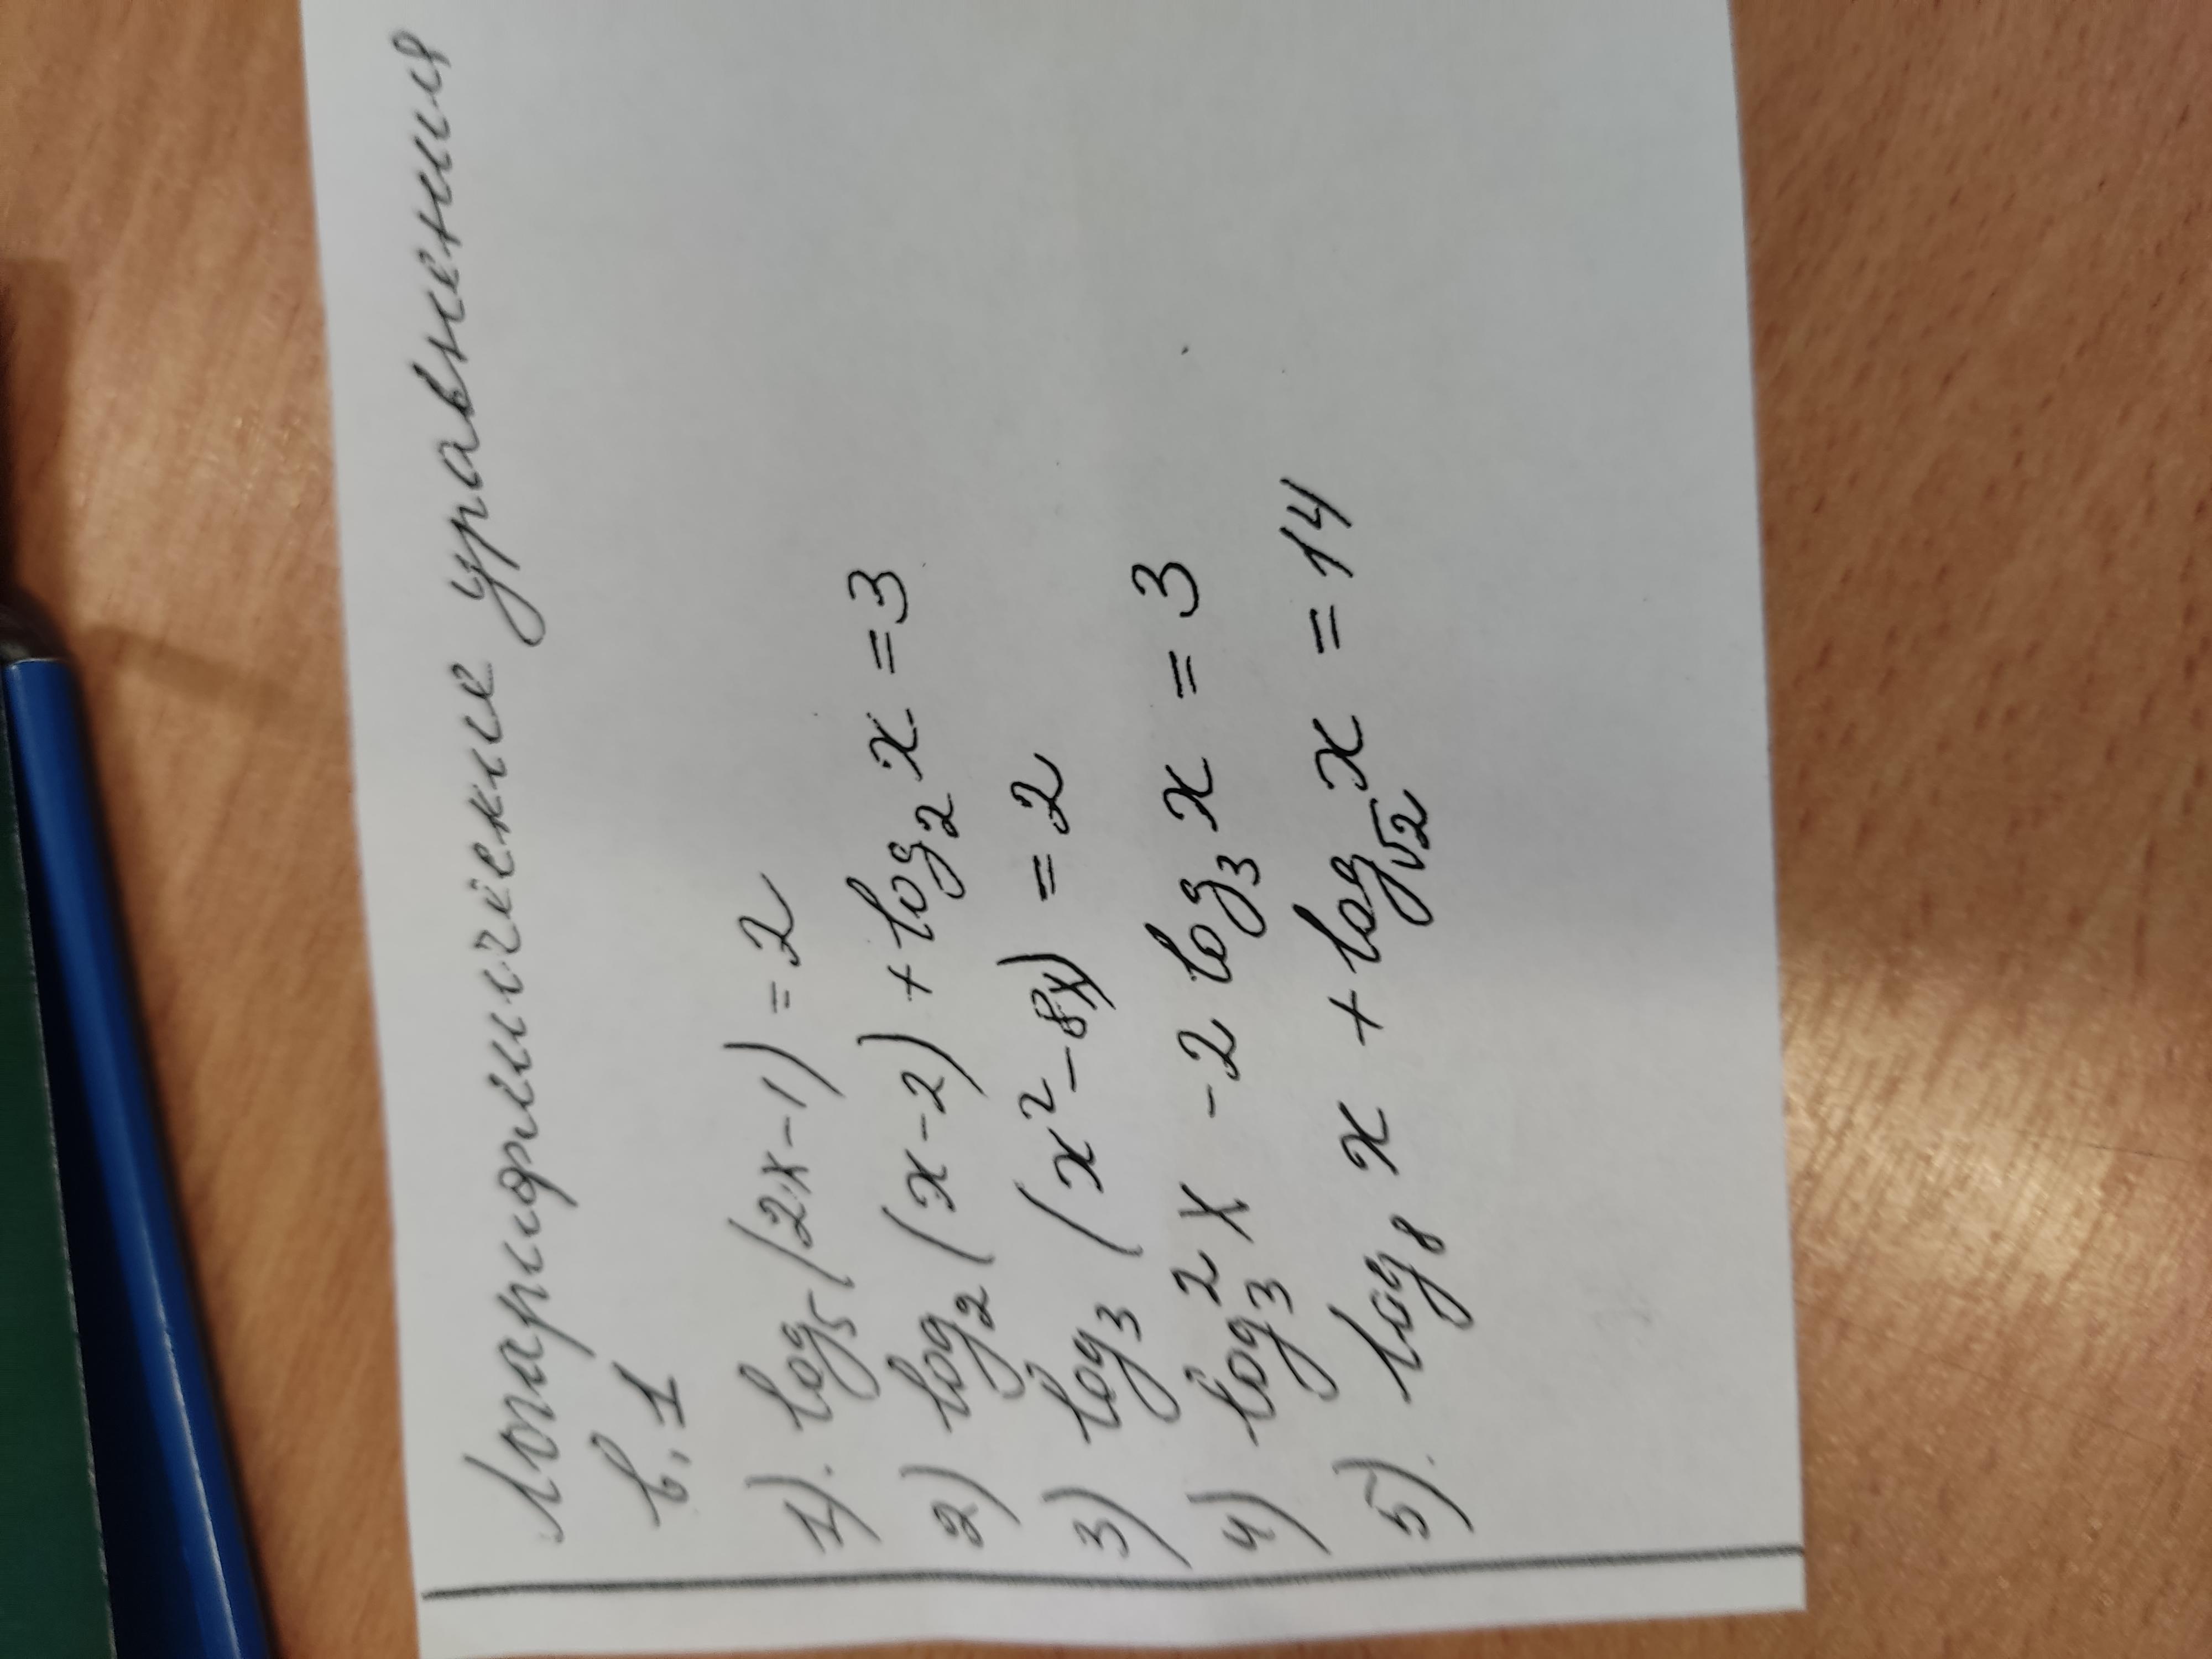 Логарифмические уравнения
в.1
1). log₅(2x-1)=2
2) log₂(x-2)+log₂x=3
3) log₃(x²-8x)=2
4) log₃²x-2log₃x=3
5). log₈x+log_√2 x=14